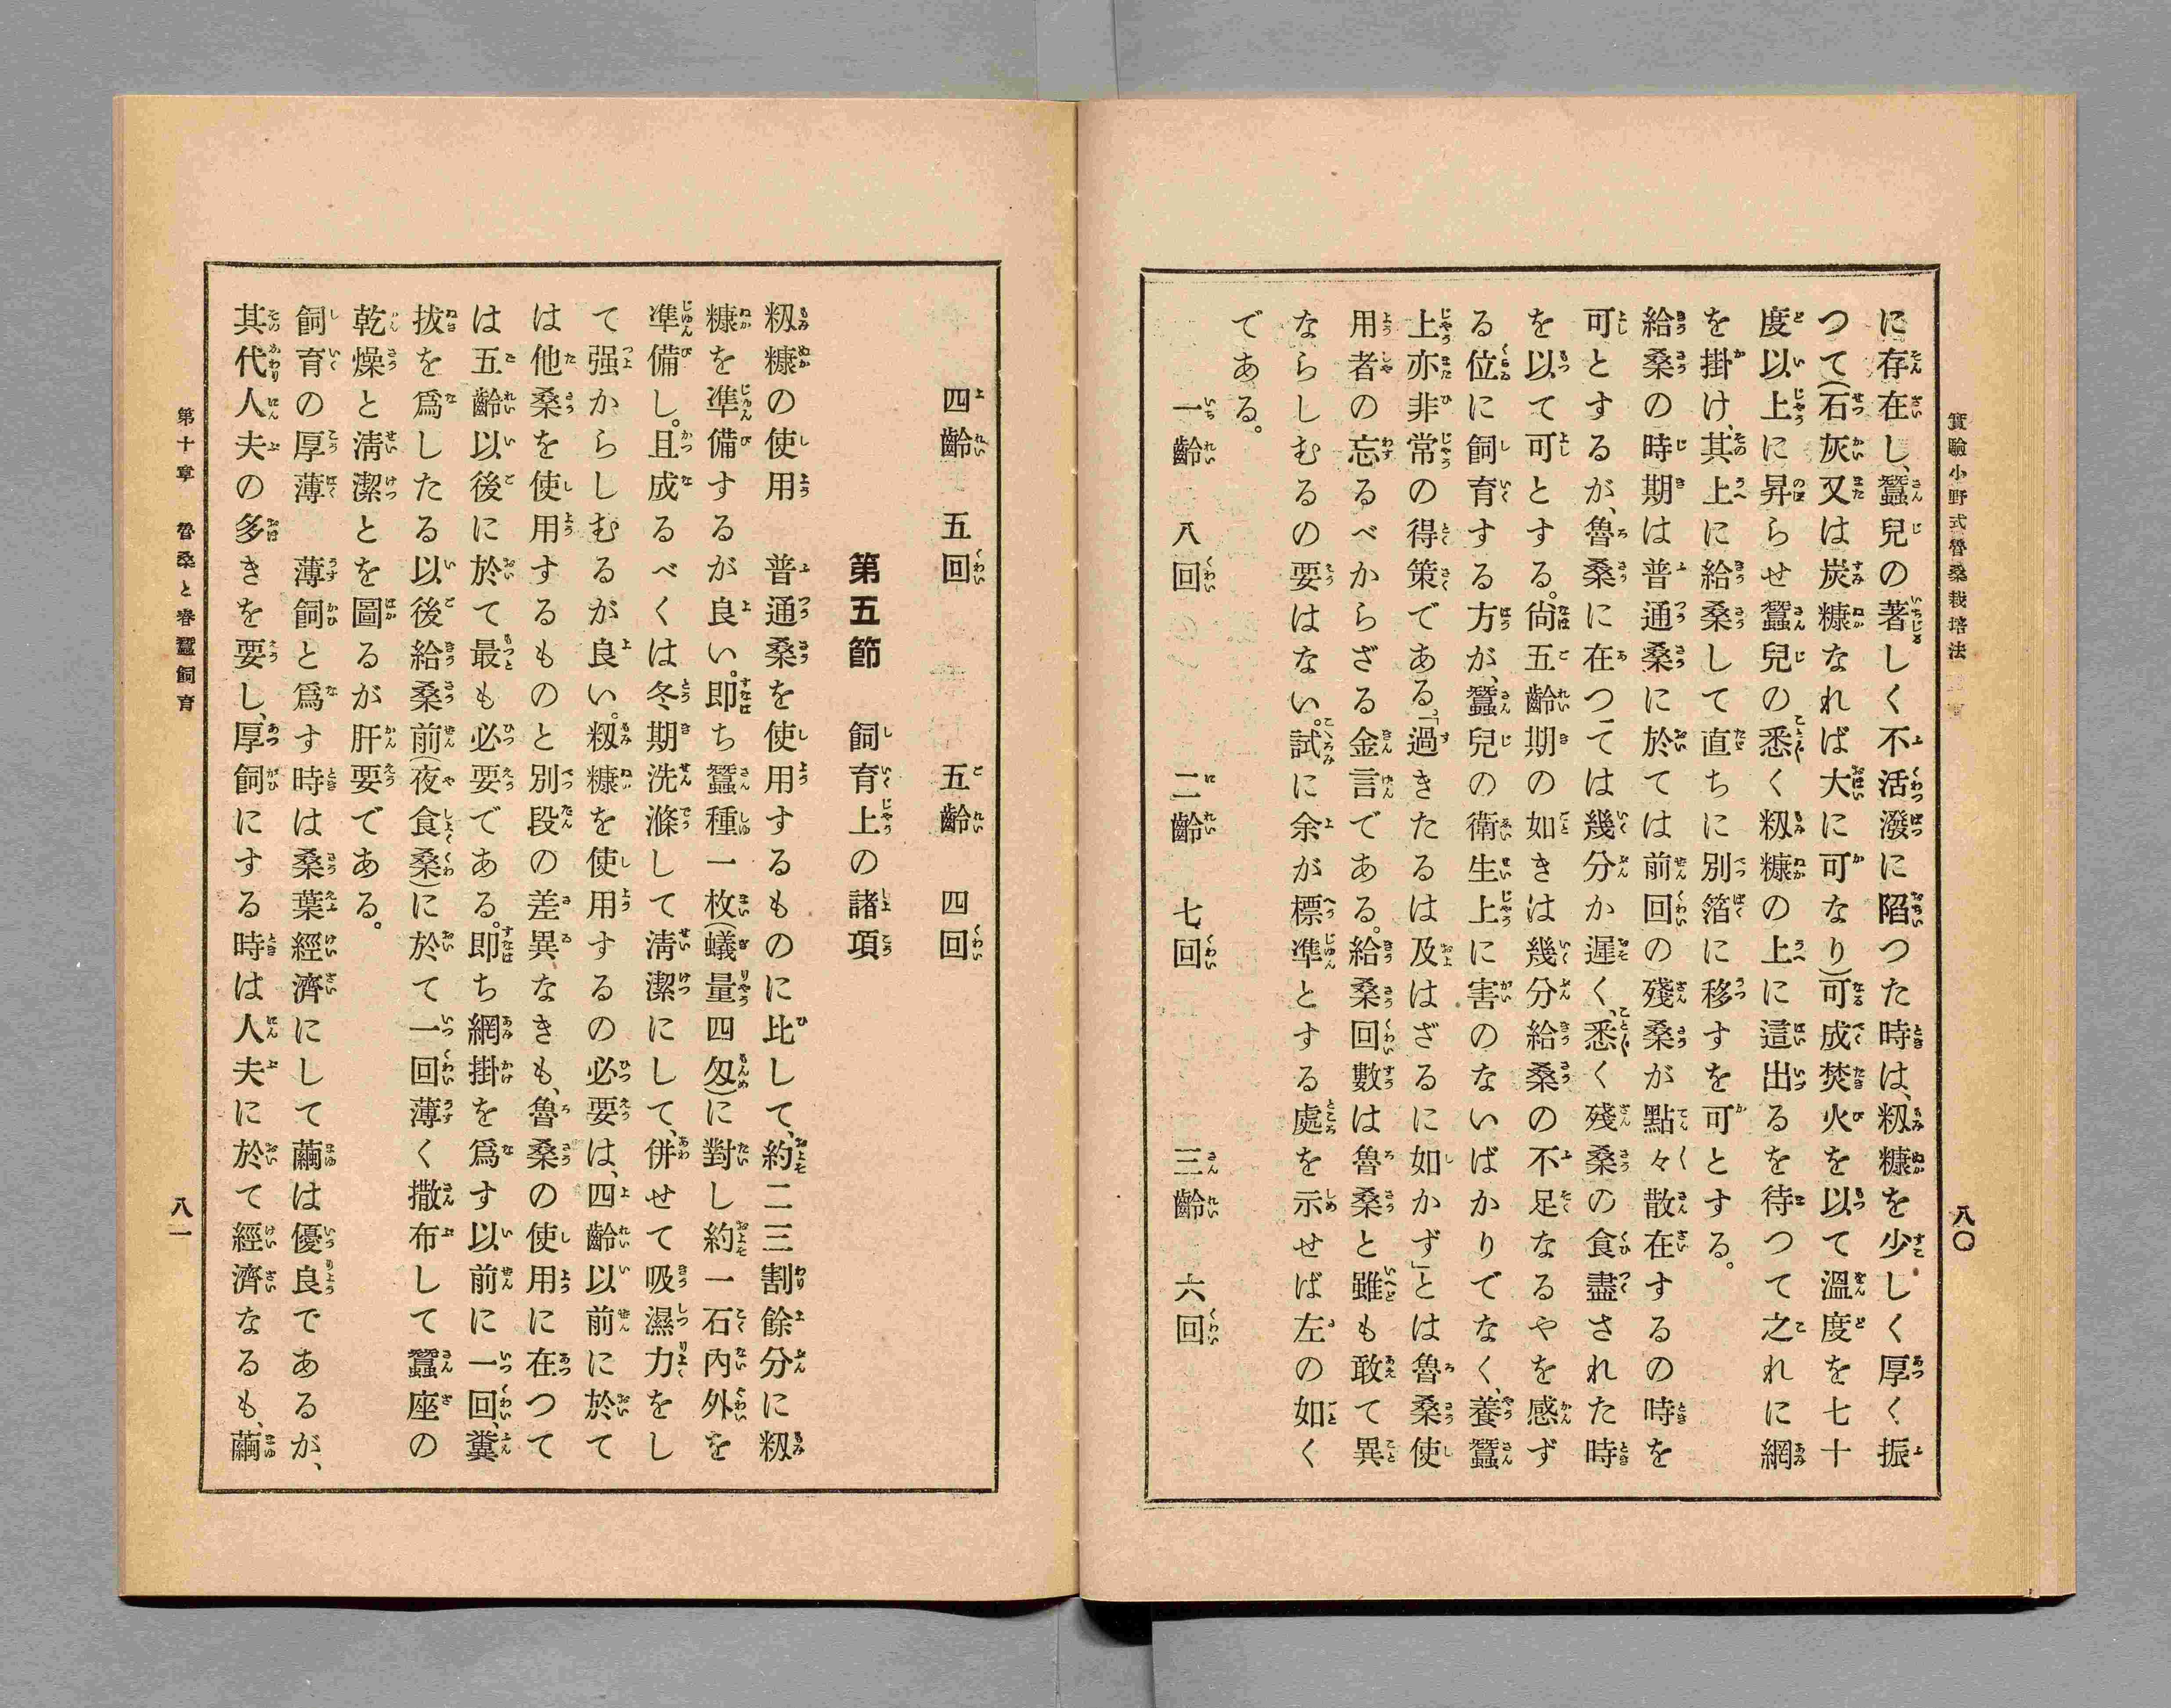 實驗小野式魯桑栽培法
八〇
に存在し、蠶兒の著しく不活潑に陷つた時は、籾糠を少しく厚く振
つて(石灰又は炭糠なれば大に可なり)可成焚火を以て溫度を七十
度以上に昇らせ蠶兒の悉く籾糠の上に這出るを待つて之れに網
を掛け、其上に給桑して直ちに別箔に移すを可とする。
給桑の時期は普通桑に於ては前回の殘桑が點々散在するの時を
可とするが、魯桑に在つては幾分か遲く、悉く殘桑の食盡された時
を以て可とする。尙五齡期の如きは幾分給桑の不足なるやを感ず
る位に飼育する方が、蠶兒の衛生上に害のないばかりでなく、養蠶
上亦非常の得策である。「過きたるは及はざるに如かず」とは魯桑使
用者の忘るべからざる金言である。給桑回數は魯桑と雖も敢て異
ならしむるの要はない。試に余が標準とする處を示せば左の如く
である。
一齡 八回 二齡 七回 三齡 六回
四齡 五回 五齡 四回
第五節 飼育上の諸項
普通桑を使用するものに比して、約二三割餘分に籾
籾糠の使用
糠を準備するが良い。即ち蠶種一枚(蟻量四匁)に對し約一石內外を
準備し。且成るべくは冬期洗滌して淸潔にして、併せて吸濕力をし
て强からしむるが良い。籾糠を使用するの必要は、四齡以前に於て
は他桑を使用するものと別段の差異なきも、魯桑の使用に在つて
は五齡以後に於て最も必要である。即ち網掛を爲す以前に一回、糞
拔を爲したる以後給桑前(夜食桑)に於て一回薄く撒布して蠶座の
乾燥と淸潔とを圖るが肝要である。
飼育の厚薄 薄飼と爲す時は桑葉經濟にして繭は優良であるが、
其代人夫の多きを要し、厚飼にする時は人夫に於て經濟なるも、繭
第十章 魯桑と春蠶飼育
八一